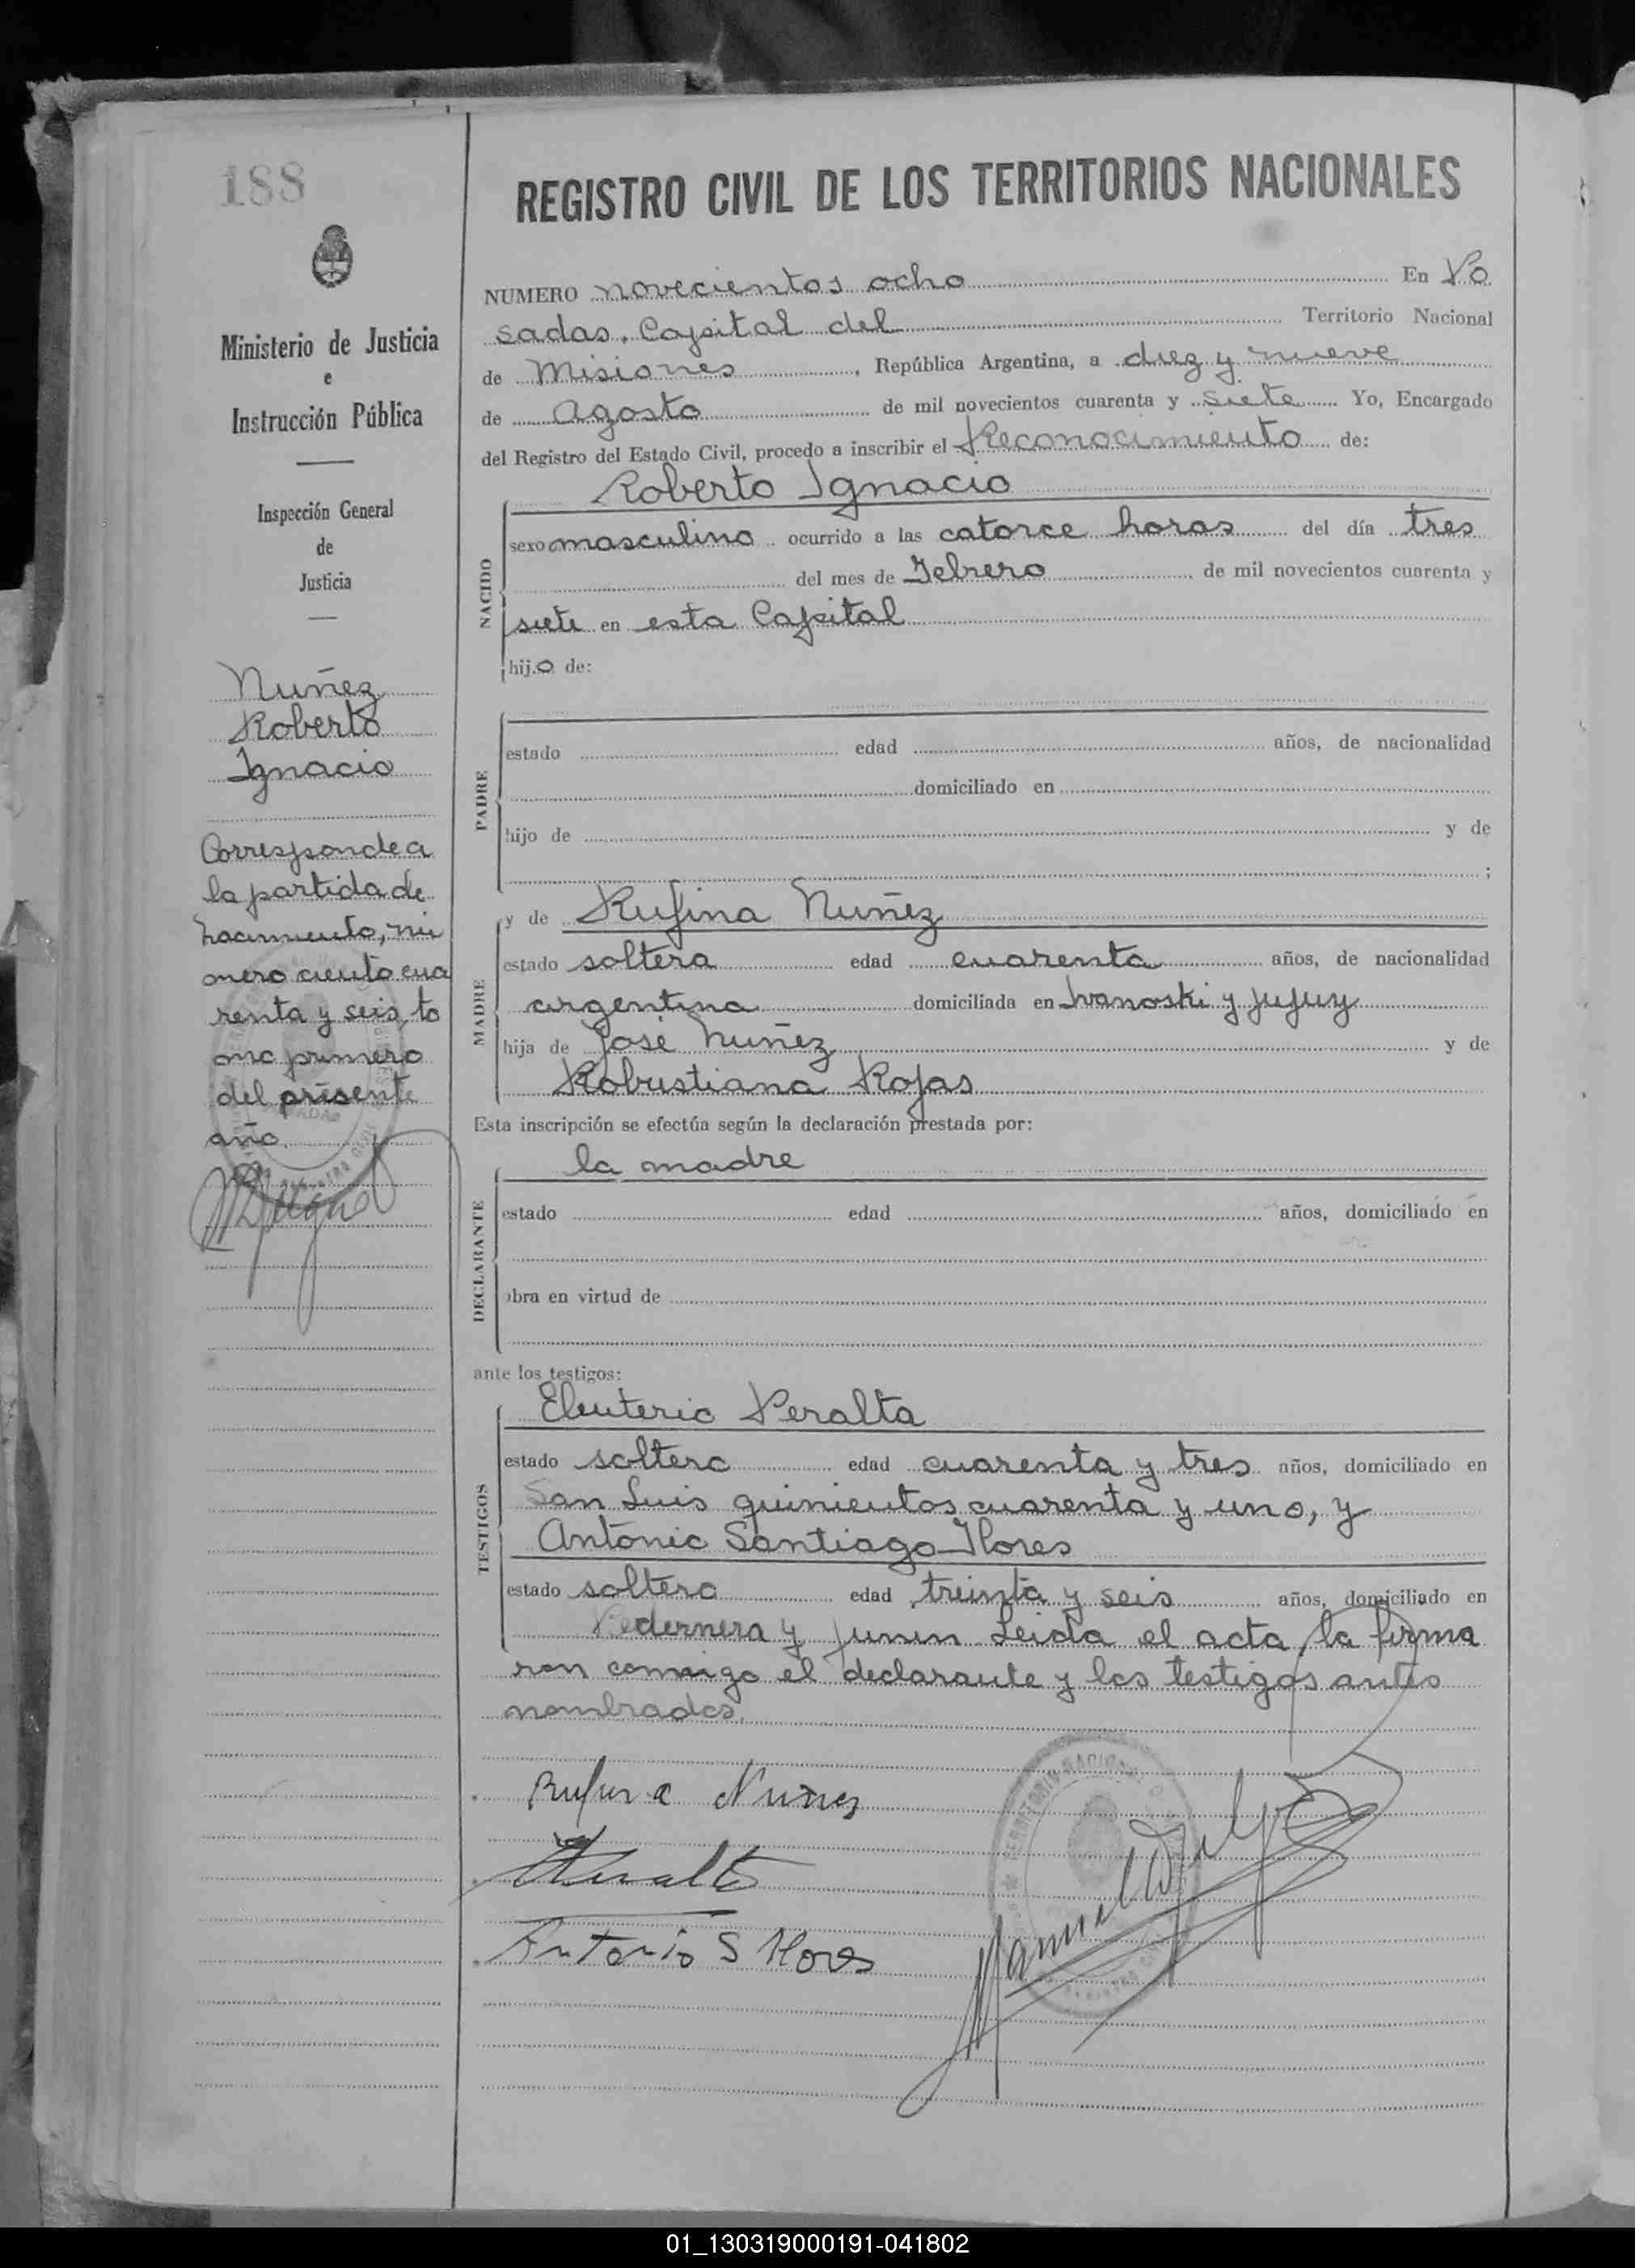 188
Ministerio de Justicia
e
Instrucción Pública
Inspección General
de
Justicia
Nuñez
Roberto
Ignacio
Corresponde a
la partida de
nacimiento, nú
mero ciento cua
renta y seis, to
mo primero
del presente
año.
REGISTRO CIVIL DE LOS TERRITORIOS NACIONALES
NUMERO novecientos ocho En Po
sadas, Capital del Territorio Nacional
de Misiones, República Argentina, a diez y nueve
de agosto de mil novecientos cuarenta y siete Yo, Encargado
del Registro del Estado Civil, procedo a inscribir el Reconocimiento de:
Roberto Ignacio
NACIDO
sexo masculino ocurrido a las catorce horas del día tres
del mes de Febrero de mil novecientos cuarenta y
siete en esta Capital
hijo de:
PADRE
estado edad años, de nacionalidad
domiciliado en
hijo de y de
;
MADRE
y de Rufina Nuñez
estado soltera edad cuarenta años, de nacionalidad
argentina domiciliada en Ivanoski y Jujuy
hija de José Nuñez y de
Robustiana Rojas
Esta inscripción se efectúa según la declaración prestada por:
la madre
DECLARANTE
estado edad años, domiciliado en
obra en virtud de
ante los testigos:
TESTIGOS
Eleuterio Peralta
estado soltero edad cuarenta y tres años, domiciliado en
San Luis quinientos cuarenta y uno, y
Antonio Santiago Flores
estado soltero edad treinta y seis años, domiciliado en
Pedernera y Junin Leida el acta, la firma
ron conmigo el declarante y los testigos antes
nombrados.
Rufina Nuñez
Peralta
Antonio S Flores
01_130319000191-041802